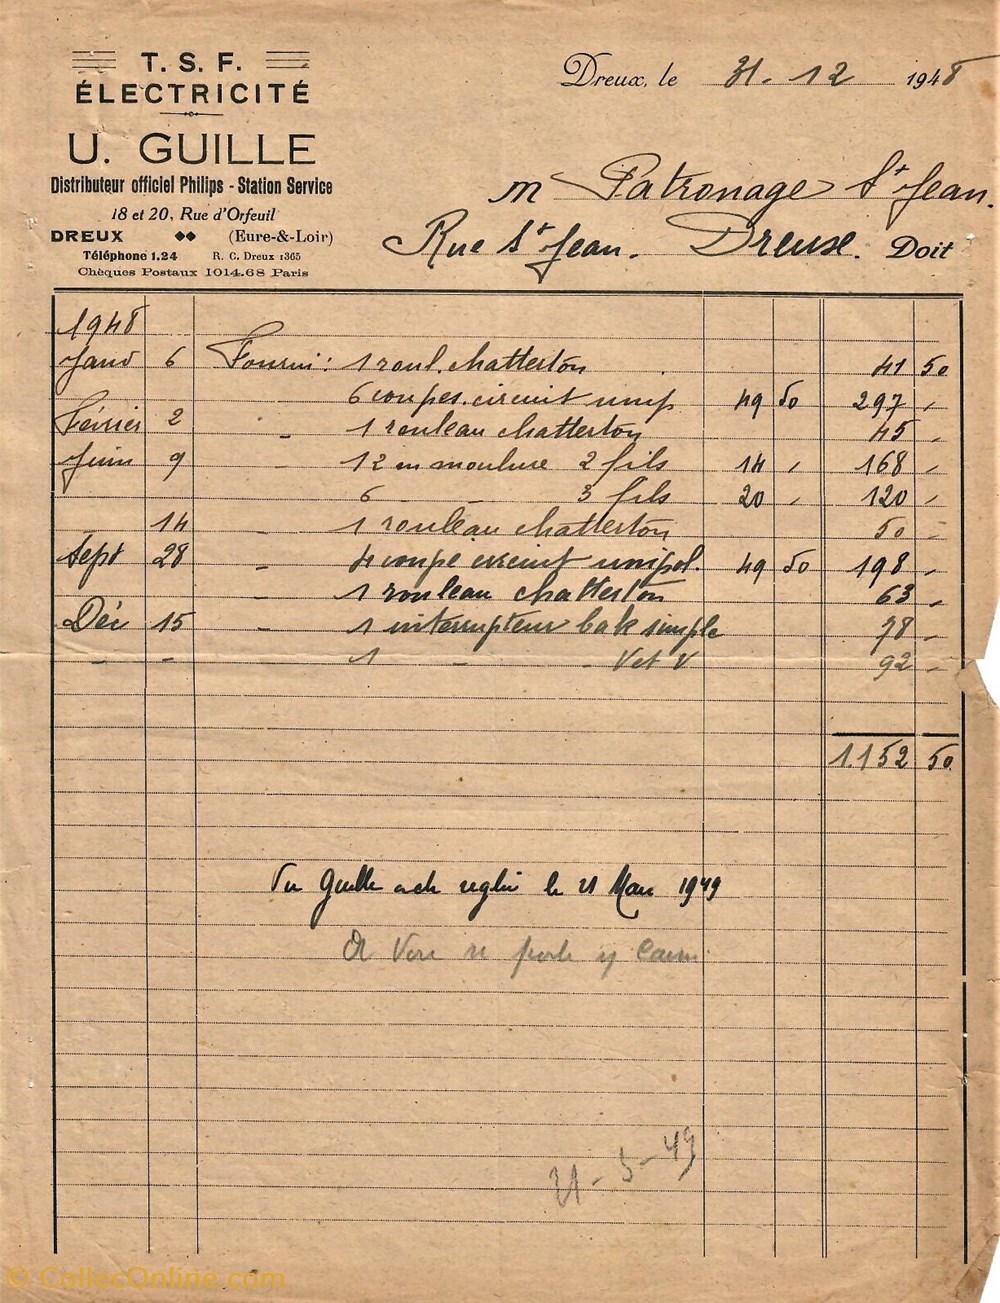 T. S. F.
ÉLECTRICITÉ
U. GUILLE
Distributeur officiel Philips - Station Service
18 et 20, Rue d'Orfeuil
DREUX (Eure-&-Loir)
Téléphone 1.24 R. C. Dreux 1365
Chèques Postaux 1014.68 Paris
Dreux, le 31. 12 1948
M Patronage St Jean.
Rue St Jean. Dreux. Doit
1948
Janv 6 Fourni: 1 roul. chatterton 41 50
6 coupes. circuit unip 49 50 297 ,
Février 2 - 1 rouleau chatterton 45 ,
Juin 9 - 12 m moulure 2 fils 14 , 168 ,
6 - - 3 fils 20 , 120 ,
14 - 1 rouleau chatterton 50 ,
Sept 28 - 4 coupe circuit unipol. 49 50 198 ,
- 1 rouleau chatterton 63 ,
Déc 15 - 1 interrupteur bak simple 78 ,
- - 1 - - V et V 92 ,
1.152 50
Guille le 21 Mars 1949
21-3-49
© CollecOnline.com